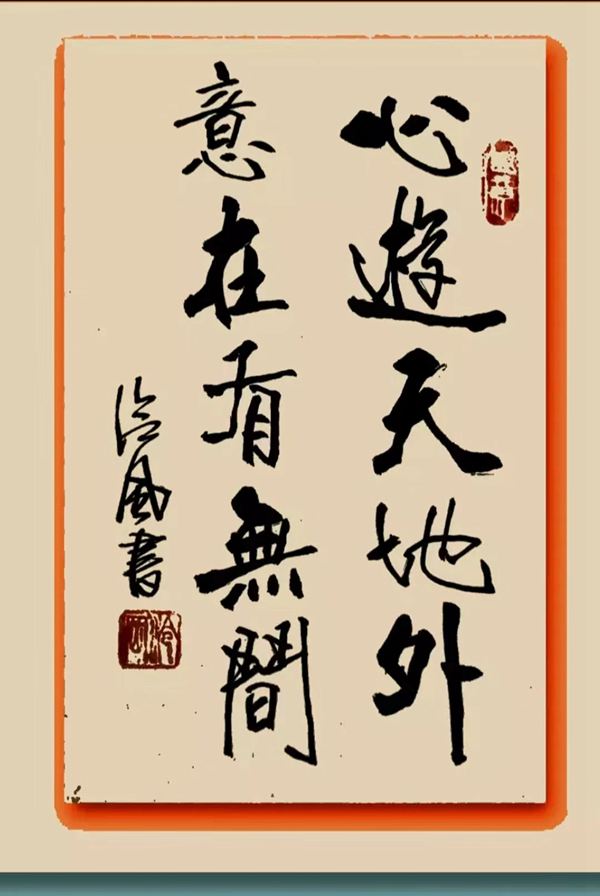 心遊天地外
意在有無間
風書